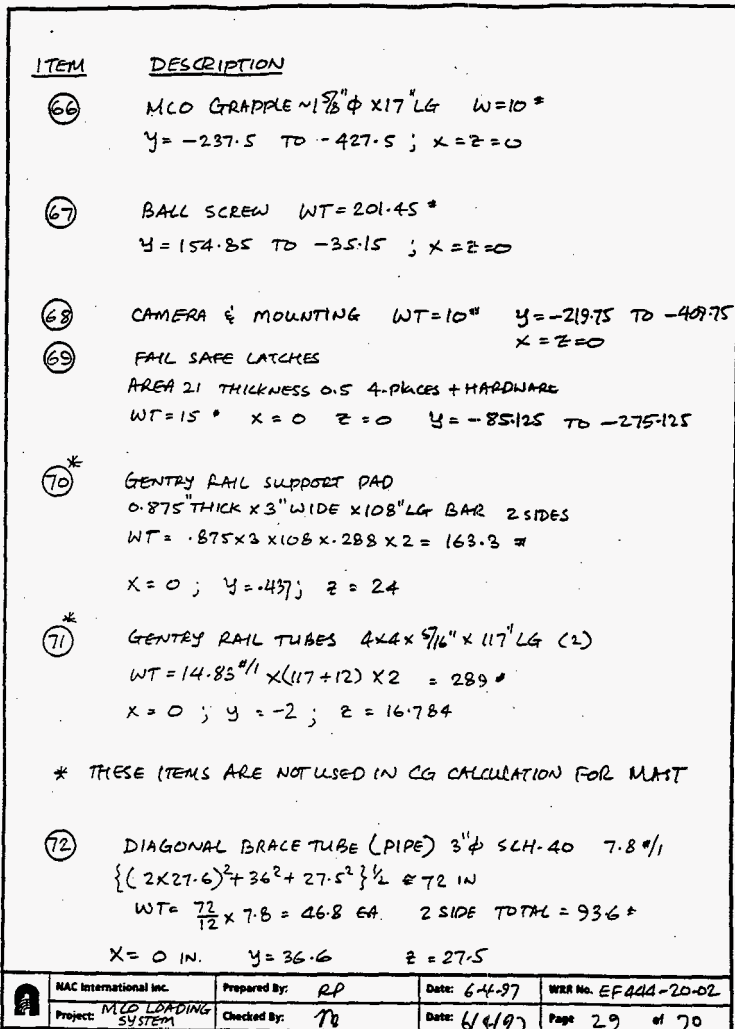 ITEM DESCRIPTION
66 MCO GRAPPLE ~1 5/8"ϕ X17"LG W=10#
y= -237.5 TO -427.5 ; x=z=0
67 BALL SCREW WT=201.45#
y=154.85 TO -35.15 ; x=z=0
68 CAMERA & MOUNTING WT=10# y=-219.75 TO -409.75
x=z=0
69 FAIL SAFE LATCHES
AREA 21 THICKNESS 0.5 4-PLACES + HARDWARE
WT=15# x=0 z=0 y=-85.125 TO -275.125
70* GENTRY RAIL SUPPORT PAD
0.875"THICK x 3"WIDE x108"LG BAR 2 SIDES
WT= .875x3x108x.288x2= 163.3 #
X=0 ; y=.437; z=24
71* GENTRY RAIL TUBES 4x4x 5/16" x 117"LG (2)
WT=14.83#/1 x(117÷12) x2 = 289#
x=0 ; y=-2 ; z=16.784
* THESE ITEMS ARE NOT USED IN CG CALCULATION FOR MAST
72 DIAGONAL BRACE TUBE (PIPE) 3"ϕ SCH-40 7.8#/1
{(2X27.6)²+36²+27.5²}½ ≅ 72 IN
WT= 72/12 x 7.8 = 46.8 EA. 2 SIDE TOTAL = 93.6#
X= 0 IN. y=36.6 z=27.5
NAC International Inc. Prepared By: RP Date: 6-4-97 WRR No. EF444-20-02
Project: MCO LOADING SYSTEM Checked By: Date: 6/4/97 Page 29 of 70